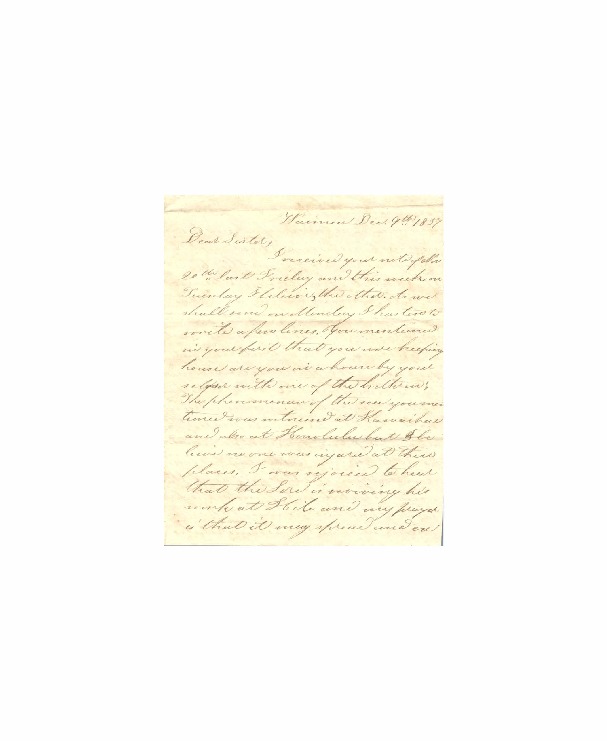 Waimea Dec 9th 1837
Dear Sister,
I received your note of the
20th last Friday and this week on
Tuesday I believe the other. As we
shall send on Monday I hasten to
write a few lines. You mentioned
in your first that you are keeping
house are you in a house by your
selves or with one of the brethren?
The phenomenon of the sea you men
tioned was witnessed at Kawaihae
and also at Honolulu but I be
lieve no one was injured at these
places. I was rejoiced to hear
that the Lord is reviving his
work at Hilo and my prayer
is that it may spread and